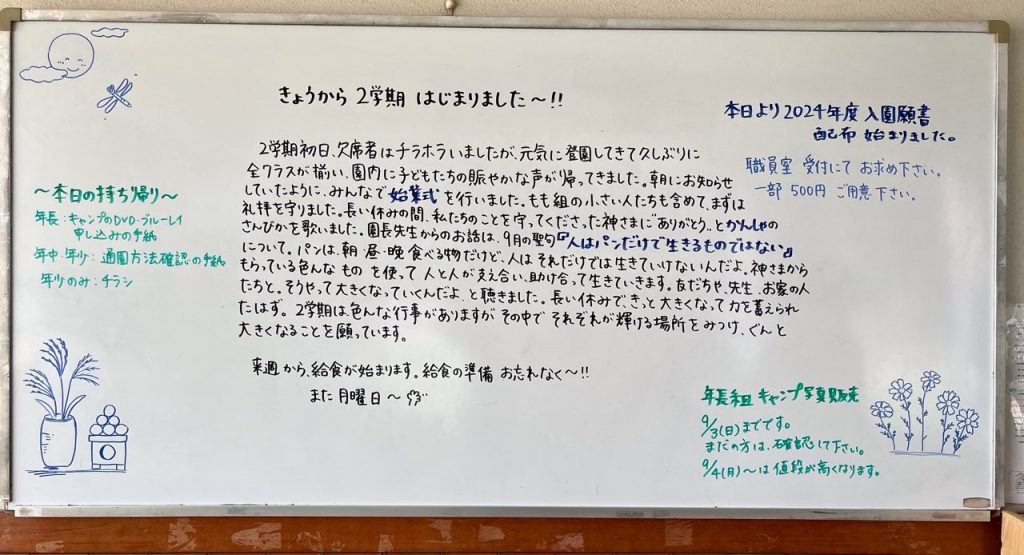 きょうから 2学期 はじまりました〜!!
2学期初日、欠席者はチラホラいましたが、元気に登園してきて久しぶりに
全クラスが揃い、園内に子どもたちの賑やかな声が帰ってきました。朝にお知らせ
していたように、みんなで始業式を行いました。もも組の小さい人たちも含めて、まずは
礼拝を守りました。長い休みの間、私たちのことを守ってくださった神さまに"ありがとう"とかんしゃの
さんびかを歌いました。園長先生からのお話は、9月の聖句『人はパンだけで生きるものではない』
について。パンは、朝・昼・晩 食べる物だけど、人は それだけでは生きていけないんだよ。神さまから
もらっている色んな もの を 使って 人と人が支え合い、助け合って生きていきます。友だちや、先生、お家の人
たちと。そうやって大きくなっていくんだよ、と聴きました。長い休みで、きっと大きくなって力を蓄えられ
たはず。2学期は色んな行事がありますが その中で それぞれが輝ける場所をみつけ、ぐんと
大きくなることを願っています。
来週から、給食が始まります。給食の準備 お忘れなく〜!!
また月曜日〜
〜本日の持ち帰り〜
年長:キャンプのDVD・ブルーレイ
申し込みの手紙
年中・年少:通園方法確認の手紙
年少のみ:チラシ
本日より2024年度 入園願書
配布 始まりました。
職員室 受付にて お求め下さい。
一部 500円 ご用意 下さい。
年長組 キャンプ写真販売
9/3(日)までです。
まだの方は、確認して下さい。
9/4(月)〜は 値段が高くなります。